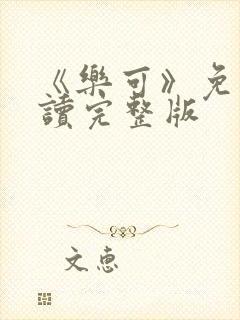 《樂可》免
讀完整版
文惠